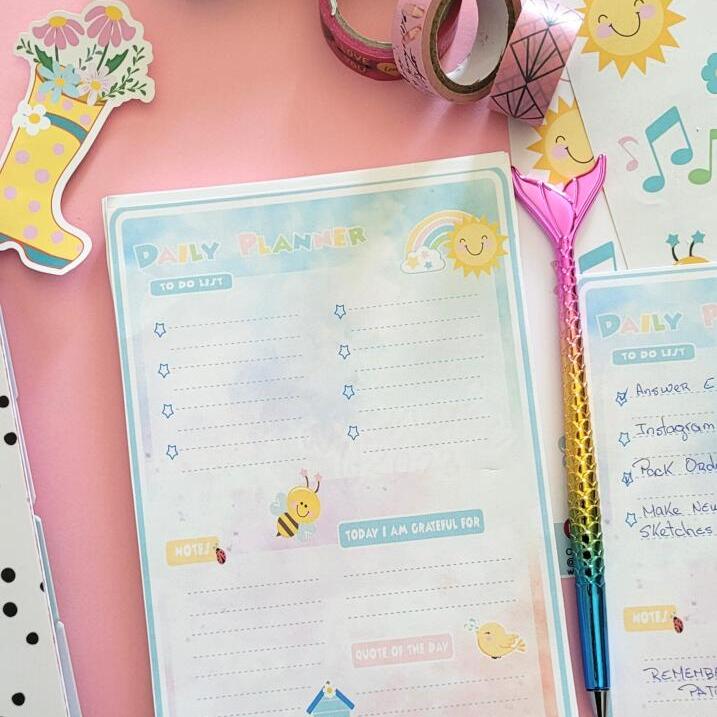 LOVE
YOU
DAILY PLANNER
TO DO LIST
NOTES
TODAY I AM GRATEFUL FOR
QUOTE OF THE DAY
DAILY P
TO DO LIST
Answer E
Instagram
Pack Orde
Make New
Sketches
NOTES
REMEMBE
PAT